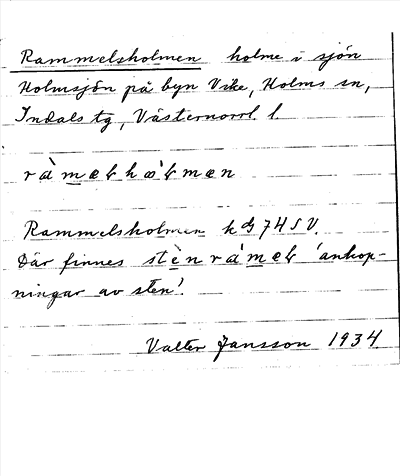 Rammelsholmen holme i sjön
Holmsjön på byn Vike, Holms sn,
Indals tg, Västernorrl. l.
ràmelhòlmen
Rammelsholmen kbl 74 SV.
Där finnes stènràmel 'anhop-
ningar av sten'.
Valter Jansson 1934